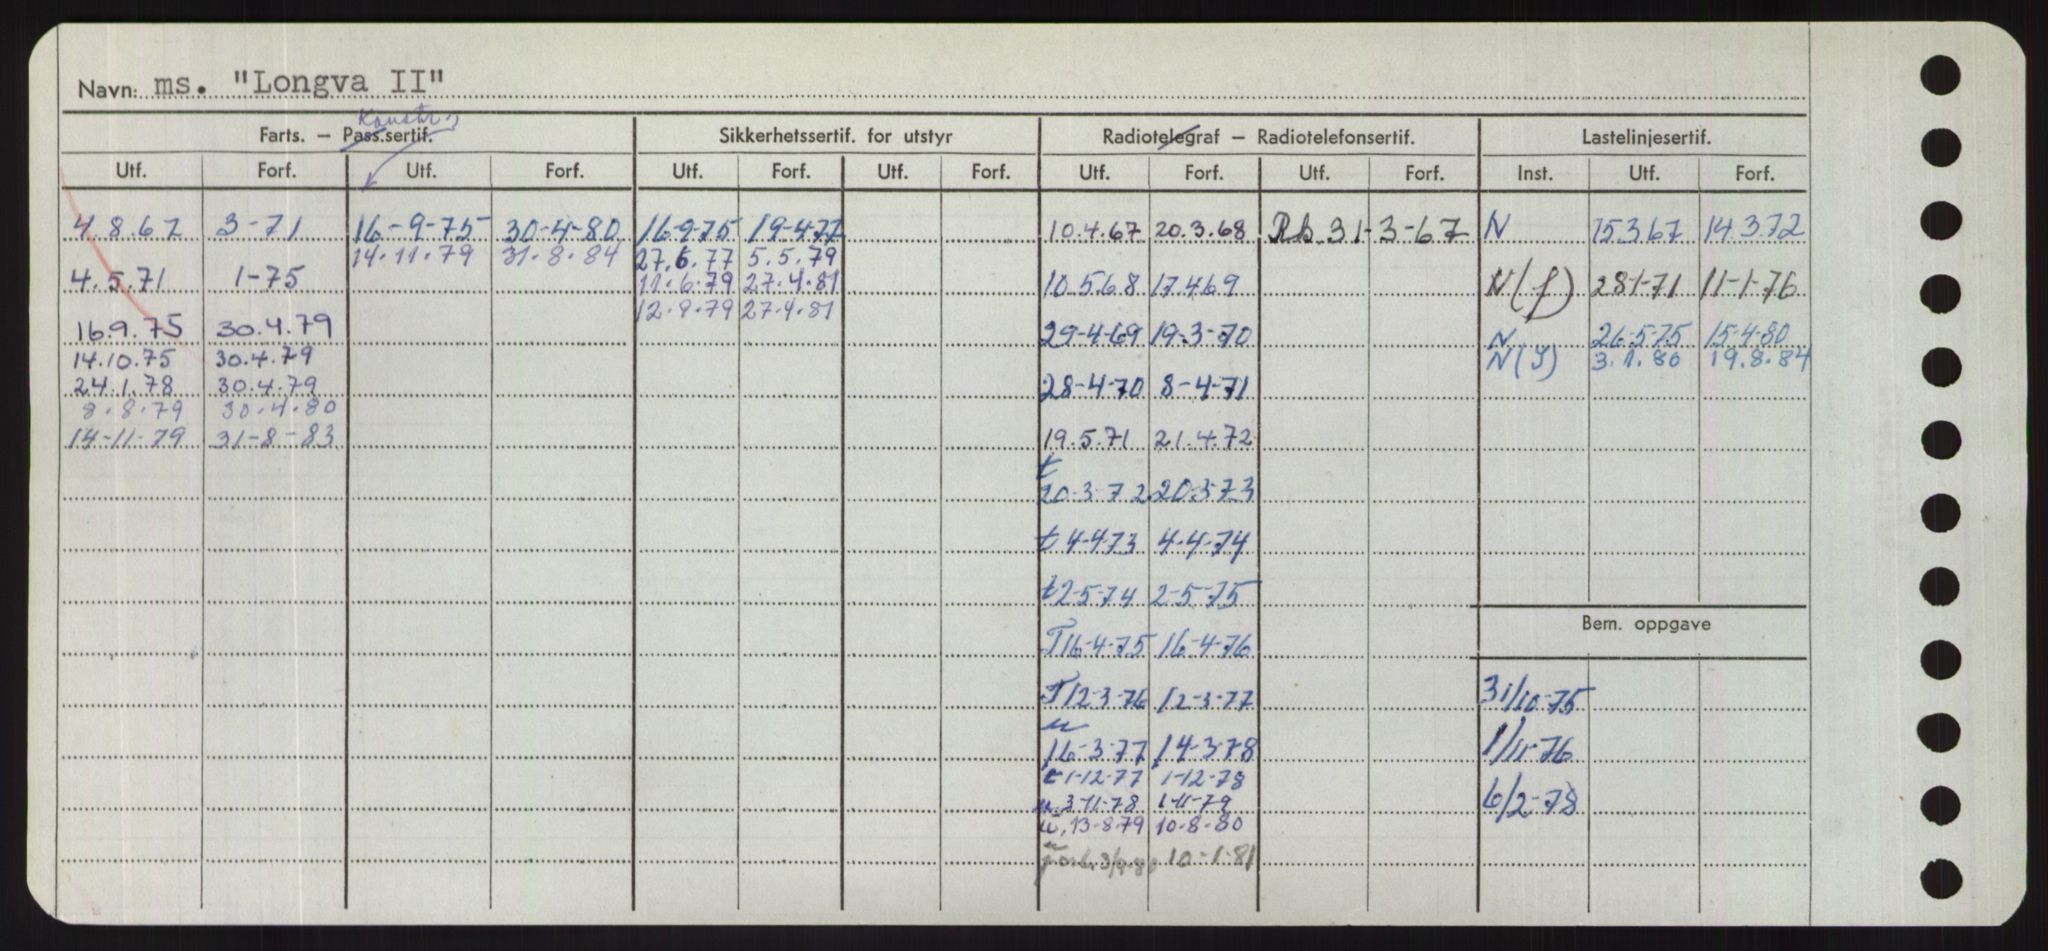 Navn: ms. "Longva II"
Konstr.
Farts. — Pass.sertif. Sikkerhetssertif. for utstyr Radiotelegraf — Radiotelefonsertif. Lastelinjesertif.
Utf. Forf. Utf. Forf. Utf. Forf. Utf. Forf. Utf. Forf. Utf. Forf. Inst. Utf. Forf.
4.8.67 3-71 16-9-75 30-4-80 16-9-75 19-4-77 10.4.67 20.3.68 Rb. 31-3-67 N 15.3.67 14.3.72
14.11.79 31.8.84 27.6.77 5.5.79
4.5.71 1-75 11.6.79 27.4.81 10.5.68 17.4.69 N(f) 28-1-71 11-1-76
12.9.79 27.4.81
16.9.75 30.4.79 29-4-69 19-3-70 N 26-5-75 15-4-80
14.10.75 30.4.79 N(S) 3.1.80 19.8.84
24.1.78 30.4.79 28-4-70 8-4-71
8.8.79 30.4.80
14-11-79 31-8-83 19.5.71 21.4.72
t
20-3-72 20-3-73
t 4-4-73 4-4-74
t 2-5-74 2-5-75
Bem. oppgave
T 16-4-75 16-4-76
T 12-3-76 12-3-77 31/10-75
u
16-3-77 14-3-78 1/11-76
t 1-12-77 1-12-78
u 3-11-78 1-11-79 6/2-78
u. 13-8-79 10-8-80
forl. 3/9-80 10-1-81